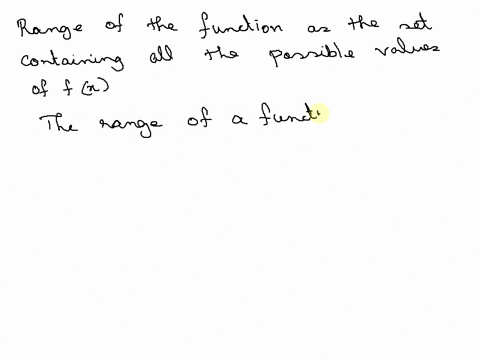 Range of the function as the set
containing all the possible values
of f(x)
The range of a functi